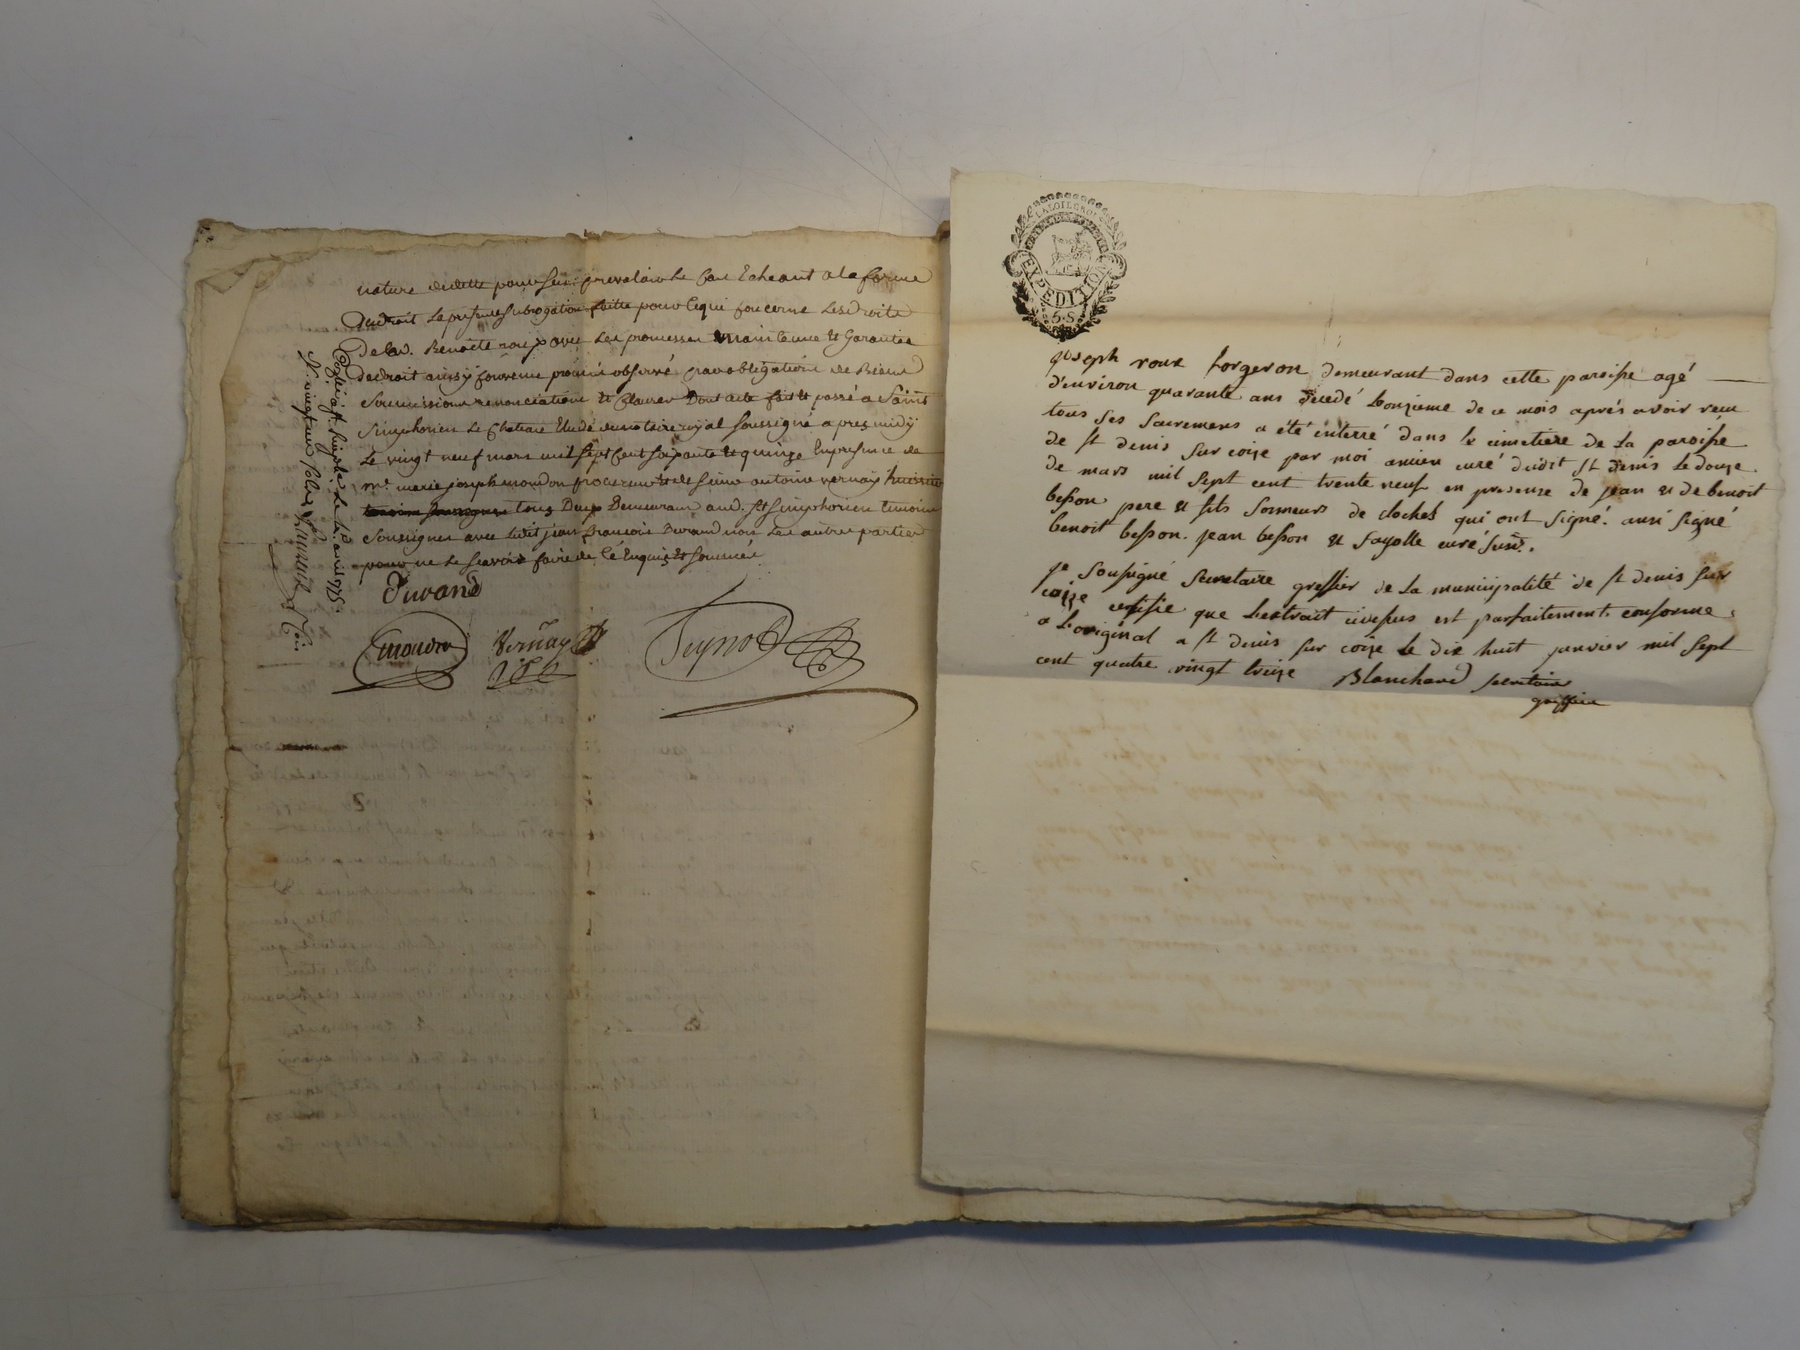 nature dicelle pour sen prevaloir le cas Echeant a la forme
du droit le presente subrogation faitte pour ce qui concerne les droits
de lad. Benoîte roux avec les promesses maintenue et Garantie
de droit aussy convenu promis observé par obligation de Biens
soumissions renonciations et Clauses Dont acte fait et passé a Saint
Simphorien le Chateau Etude du notaire royal soussigné apres midy
le vingt neuf mars mil sept cent soixante et quinze En presence de
Me. marie joseph mondon procureur et de sieur antoine vernay huissier
tous Deux Demeurant aud. St Simphorien temoins
soussignes avec ledit jean françois Durand non les autres parties
pour ne le scavoir faire de ce Enquis et sommés
Durand
mondon
Vernay
Peynot
avril 1775
LA LOI ET LE ROI
EXPEDITION
5. S.
joseph roux forgeron demeurant dans cette paroisse agé
d'environ quarante ans decedé le onzieme de ce mois aprés avoir reçu
tous ses sacremens a eté enterré dans le cimetiere de la paroisse
de st denis sur coise par moi ancien curé dudit st denis le douze
de mars mil sept cent trente neuf en presence de jean et de benoit
besson pere et fils sonneurs de cloches qui ont signé. ansi signé
benoit besson. jean besson et fayolle curé susd.
je soussigné secretaire greffier de la municipalité de st denis sur
coise certifie que lextrait cidessus est parfaitement conforme
a l'original a st denis sur coise le dix huit janvier mil sept
cent quatre vingt treize Blanchard secretaire
greffier